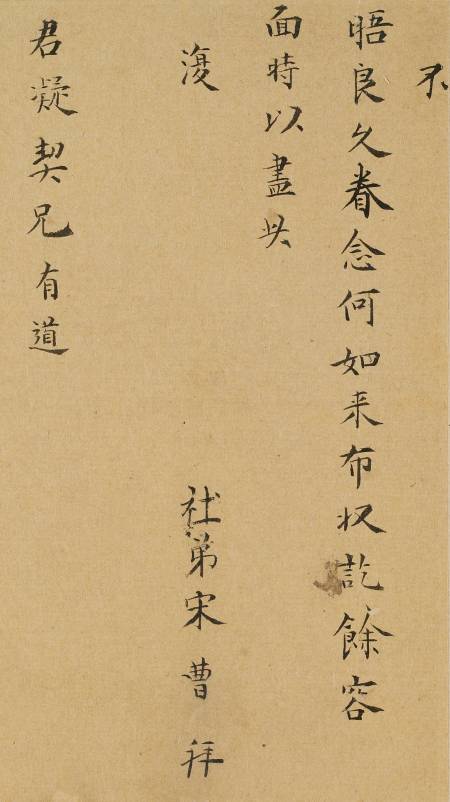 不
晤良久眷念何如来布収訖餘容
面時以盡此
復
社弟宋曹拜
君凝契兄有道